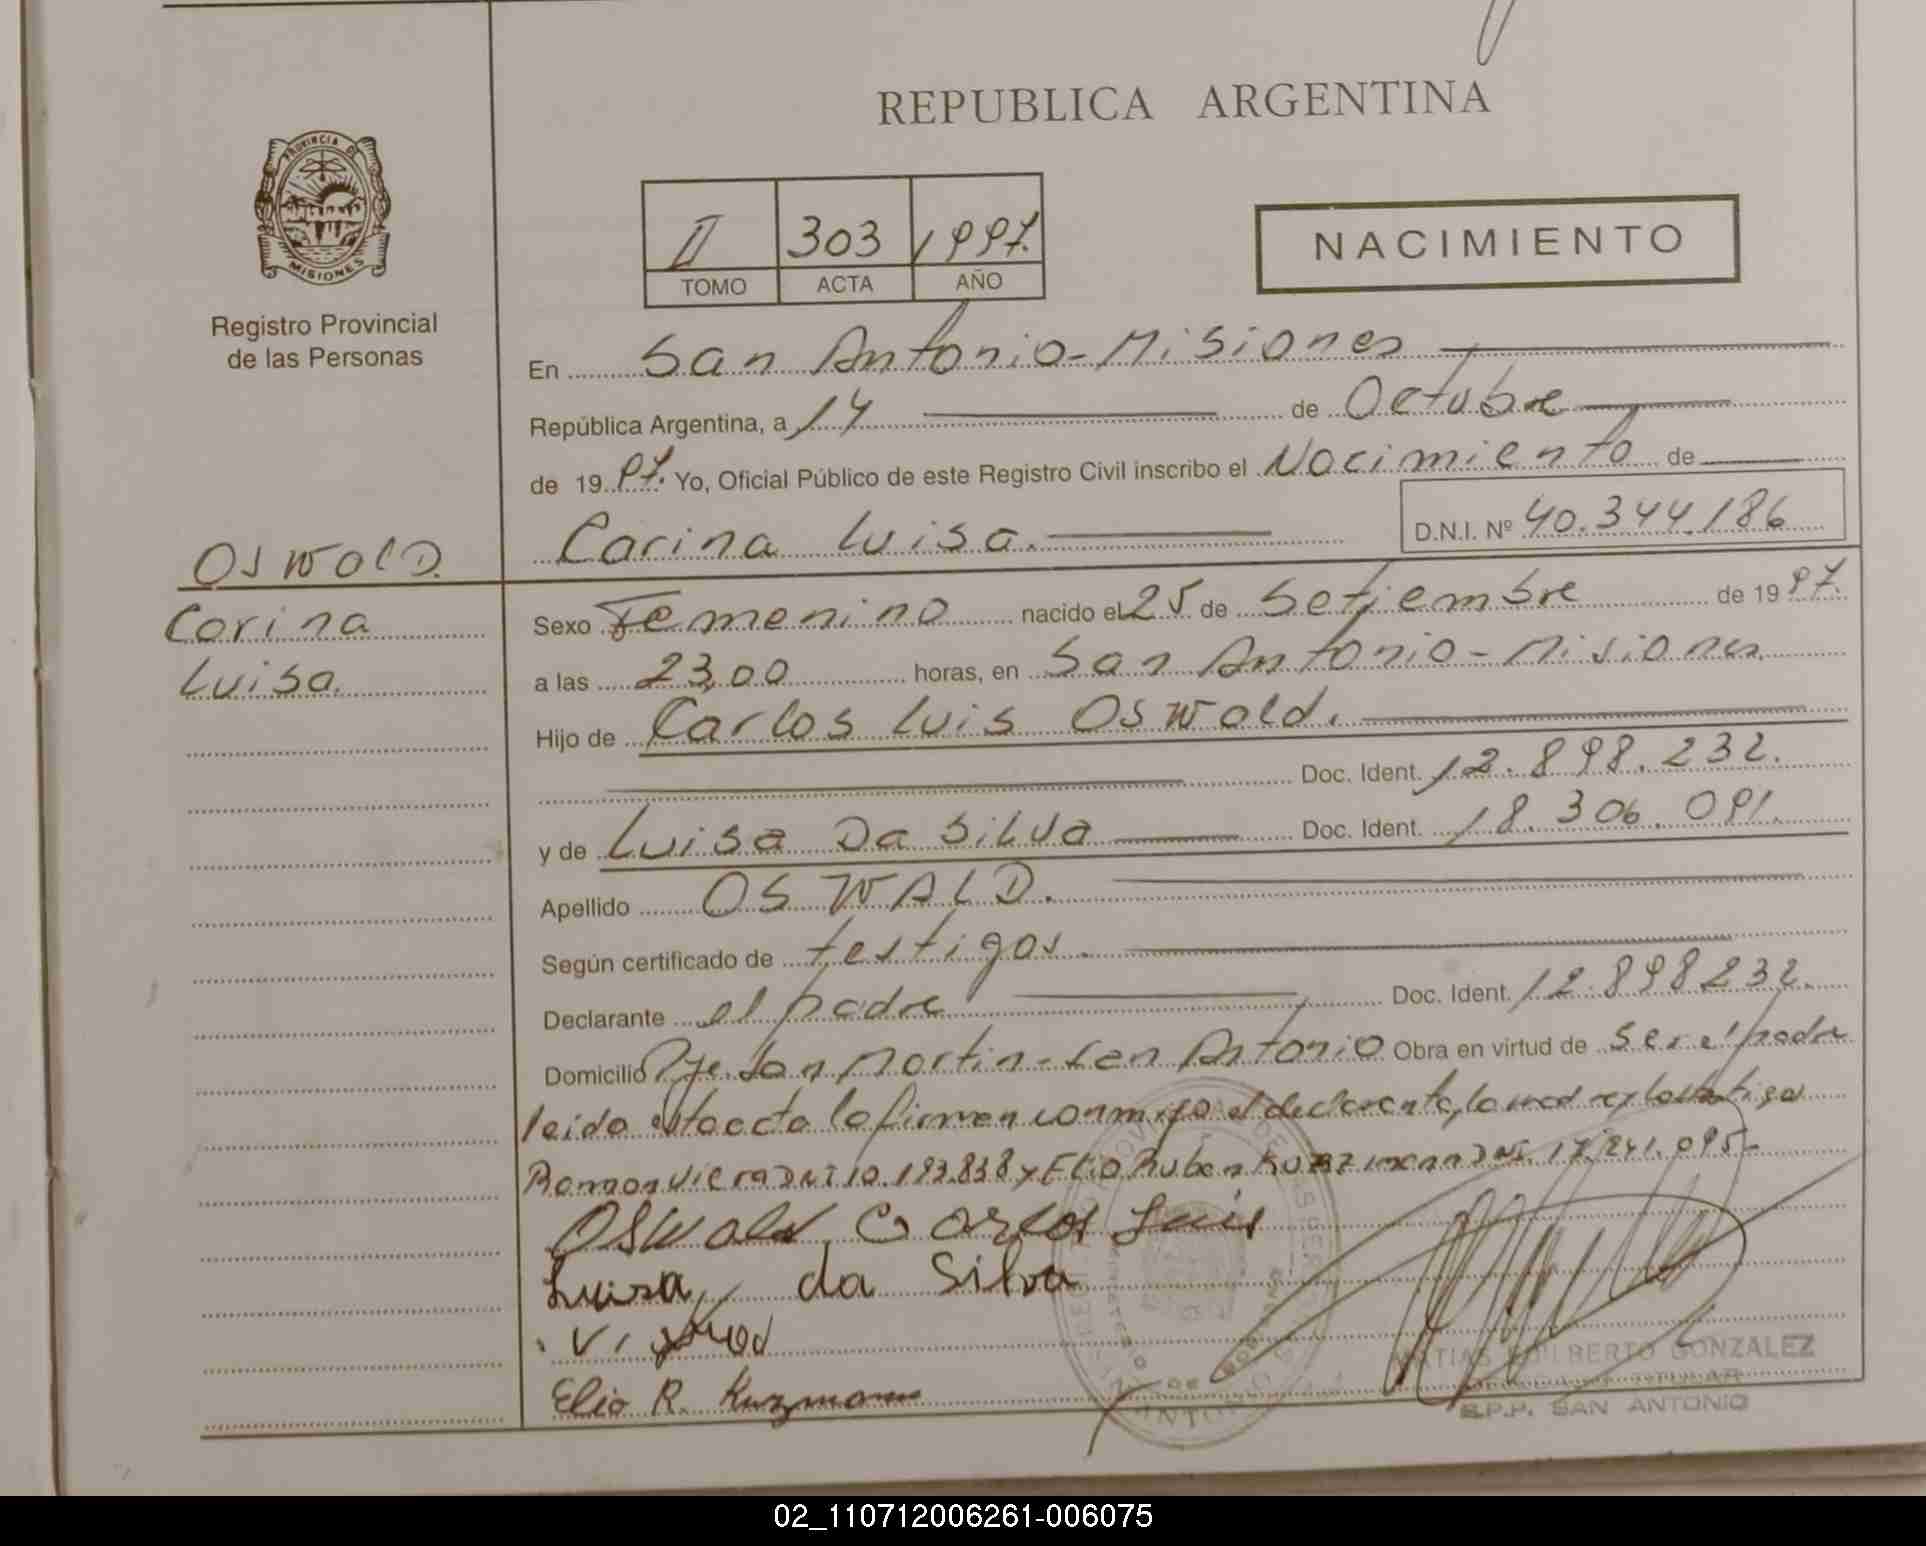 REPUBLICA ARGENTINA
PROVINCIA DE
MISIONES
Registro Provincial
de las Personas
II 303 1997.
TOMO ACTA AÑO
NACIMIENTO
En San Antonio - Misiones
República Argentina, a 14 de Octubre
de 1997. Yo, Oficial Público de este Registro Civil inscribo el Nacimiento de
Carina Luisa. D.N.I. Nº 40.344.186
OSWALD.
Carina
Luisa.
Sexo Femenino nacido el 25 de Setiembre de 1997.
a las 23,00 horas, en San Antonio - Misiones
Hijo de Carlos Luis Oswald.
Doc. Ident. 12.898.232.
y de Luisa Da Silva Doc. Ident. 18.306.091.
Apellido OSWALD.
Según certificado de testigos.
Declarante el padre Doc. Ident. 12.898232.
Domicilio Pje. San Martin - San Antonio Obra en virtud de ser el padre
leida esta acta la firman conmigo el declarante, la madre y los testigos
Ramon Viera DNI 10.193.838 y Elio Ruben Kuzmann DNI. 17.241.095-
Oswald Carlos Luis
Luisa da Silva
Elio R. Kuzmann
MATIAS GONZALEZ
TITULAR
R.P.P. SAN ANTONIO
02_110712006261-006075